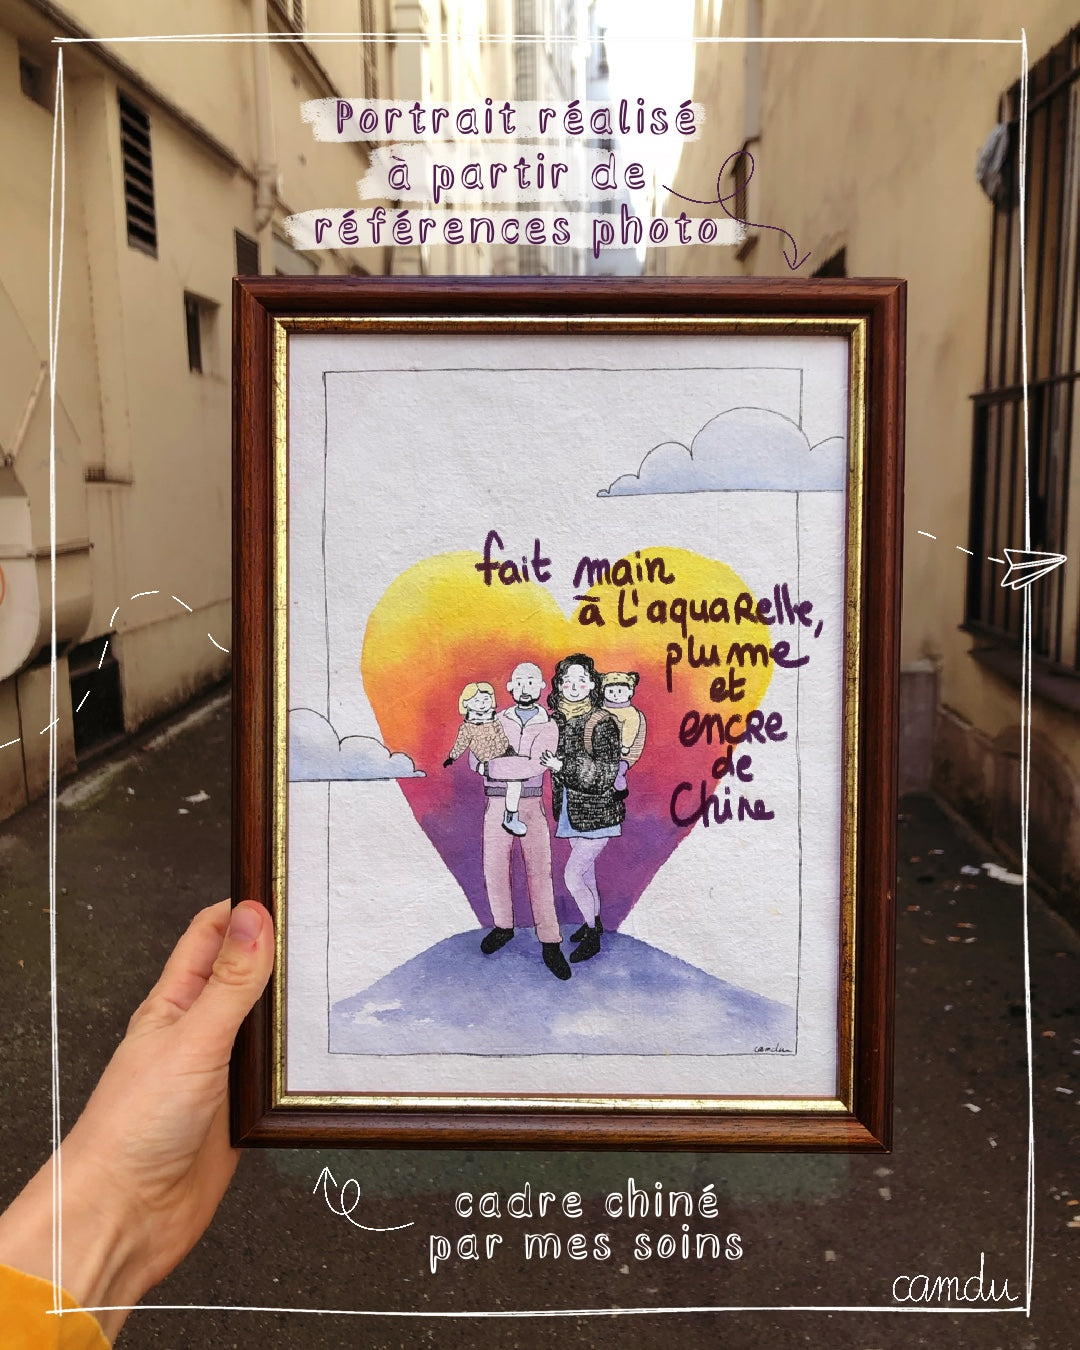 Portrait réalisé
à partir de
références photo
fait main
à l'aquarelle,
plume
et
encre
de
Chine
camdu
cadre chiné
par mes soins
camdu